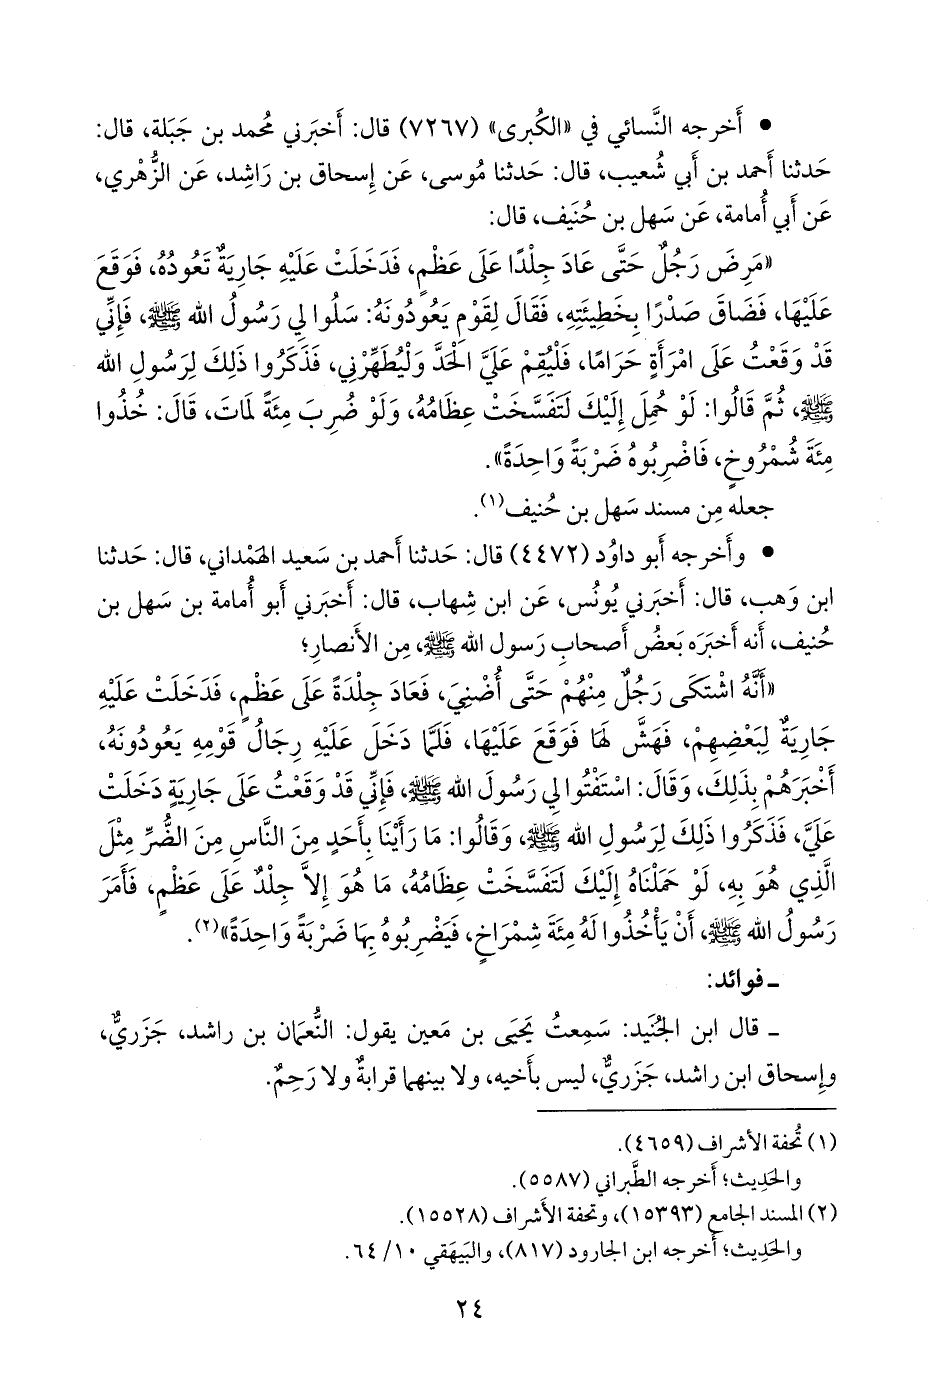 • أَخرجه النَّسائي في «الكُبرى» (٧٢٦٧) قال: أَخبَرني مُحمد بن جَبَلة، قال:
حَدثنا أَحمد بن أَبي شُعيب، قال: حَدثنا مُوسى، عَن إِسحاق بن رَاشِد، عَن الزُّهْري،
عَن أَبي أُمامة، عَن سَهل بن حُنَيف، قال:
«مَرِضَ رَجُلٌ حَتَّى عَادَ جِلْدًا عَلَى عَظْمٍ، فَدَخَلَتْ عَلَيْهِ جَارِيَةٌ تَعُودُهُ، فَوَقَعَ
عَلَيْهَا، فَضَاقَ صَدْرًا بِخَطِيئَتِهِ، فَقَالَ لِقَوْمٍ يَعُودُونَهُ: سَلُوا لِي رَسُولَ الله ﷺ، فَإِنِّي
قَدْ وَقَعْتُ عَلَى امْرَأَةٍ حَرَامًا، فَلْيُقِمْ عَلَيَّ الْحَدَّ وَلْيُطَهِّرْنِي، فَذَكَرُوا ذَلِكَ لِرَسُولِ الله
ﷺ، ثُمَّ قَالُوا: لَوْ حُمِلَ إِلَيْكَ لَتَفَسَّخَتْ عِظَامُهُ، وَلَوْ ضُرِبَ مِئَةً لَمَاتَ، قَالَ: خُذُوا
مِئَةَ شُمْرُوخٍ، فَاضْرِبُوهُ ضَرْبَةً وَاحِدَةً».
جعله مِن مسند سَهل بن حُنيف(١).
• وأَخرجه أَبو داوُد (٤٤٧٢) قال: حَدثنا أَحمد بن سَعيد الهَمْداني، قال: حَدثنا
ابن وَهب، قال: أَخبَرني يُونُس، عَن ابن شِهاب، قال: أَخبَرني أَبو أُمامة بن سَهل بن
حُنيف، أَنه أَخبَرَه بَعضُ أَصحابِ رَسول الله ﷺ، مِن الأَنصارِ؛
«أَنَّهُ اشْتَكَى رَجُلٌ مِنْهُمْ حَتَّى أُضْنِيَ، فَعَادَ جِلْدَةً عَلَى عَظْمٍ، فَدَخَلَتْ عَلَيْهِ
جَارِيَةٌ لِبَعْضِهِمْ، فَهَشَّ لَهَا فَوَقَعَ عَلَيْهَا، فَلَمَّا دَخَلَ عَلَيْهِ رِجَالُ قَوْمِهِ يَعُودُونَهُ،
أَخْبَرَهُمْ بِذَلِكَ، وَقَالَ: اسْتَفْتُوا لِي رَسُولَ الله ﷺ، فَإِنِّي قَدْ وَقَعْتُ عَلَى جَارِيَةٍ دَخَلَتْ
عَلَيَّ، فَذَكَرُوا ذَلِكَ لِرَسُولِ الله ﷺ، وَقَالُوا: مَا رَأَيْنَا بِأَحَدٍ مِنَ النَّاسِ مِنَ الضُّرِّ مِثْلَ
الَّذِي هُوَ بِهِ، لَوْ حَمَلْنَاهُ إِلَيْكَ لَتَفَسَّخَتْ عِظَامُهُ، مَا هُوَ إِلاَّ جِلْدٌ عَلَى عَظْمٍ، فَأَمَرَ
رَسُولُ الله ﷺ، أَنْ يَأْخُذُوا لَهُ مِئَةَ شِمْرَاخٍ، فَيَضْرِبُوهُ بِهَا ضَرْبَةً وَاحِدَةً»(٢).
ـ فوائد:
ـ قال ابن الجُنَيد: سَمِعتُ يَحيَى بن مَعين يقول: النُّعمَان بن راشد، جَزَريٌّ،
وإِسحاق ابن راشد، جَزَريٌّ، ليس بأَخيه، ولا بينهما قرابةٌ ولا رَحِمٌ.
(١) تُحفة الأشراف (٤٦٥٩).
والحَدِيث؛ أَخرجه الطَّبراني (٥٥٨٧).
(٢) المسند الجامع (١٥٣٩٣)، وتحفة الأَشراف (١٥٥٢٨).
والحَدِيث؛ أَخرجه ابن الجارود (٨١٧)، والبَيهَقي ١٠/ ٦٤.
٢٤